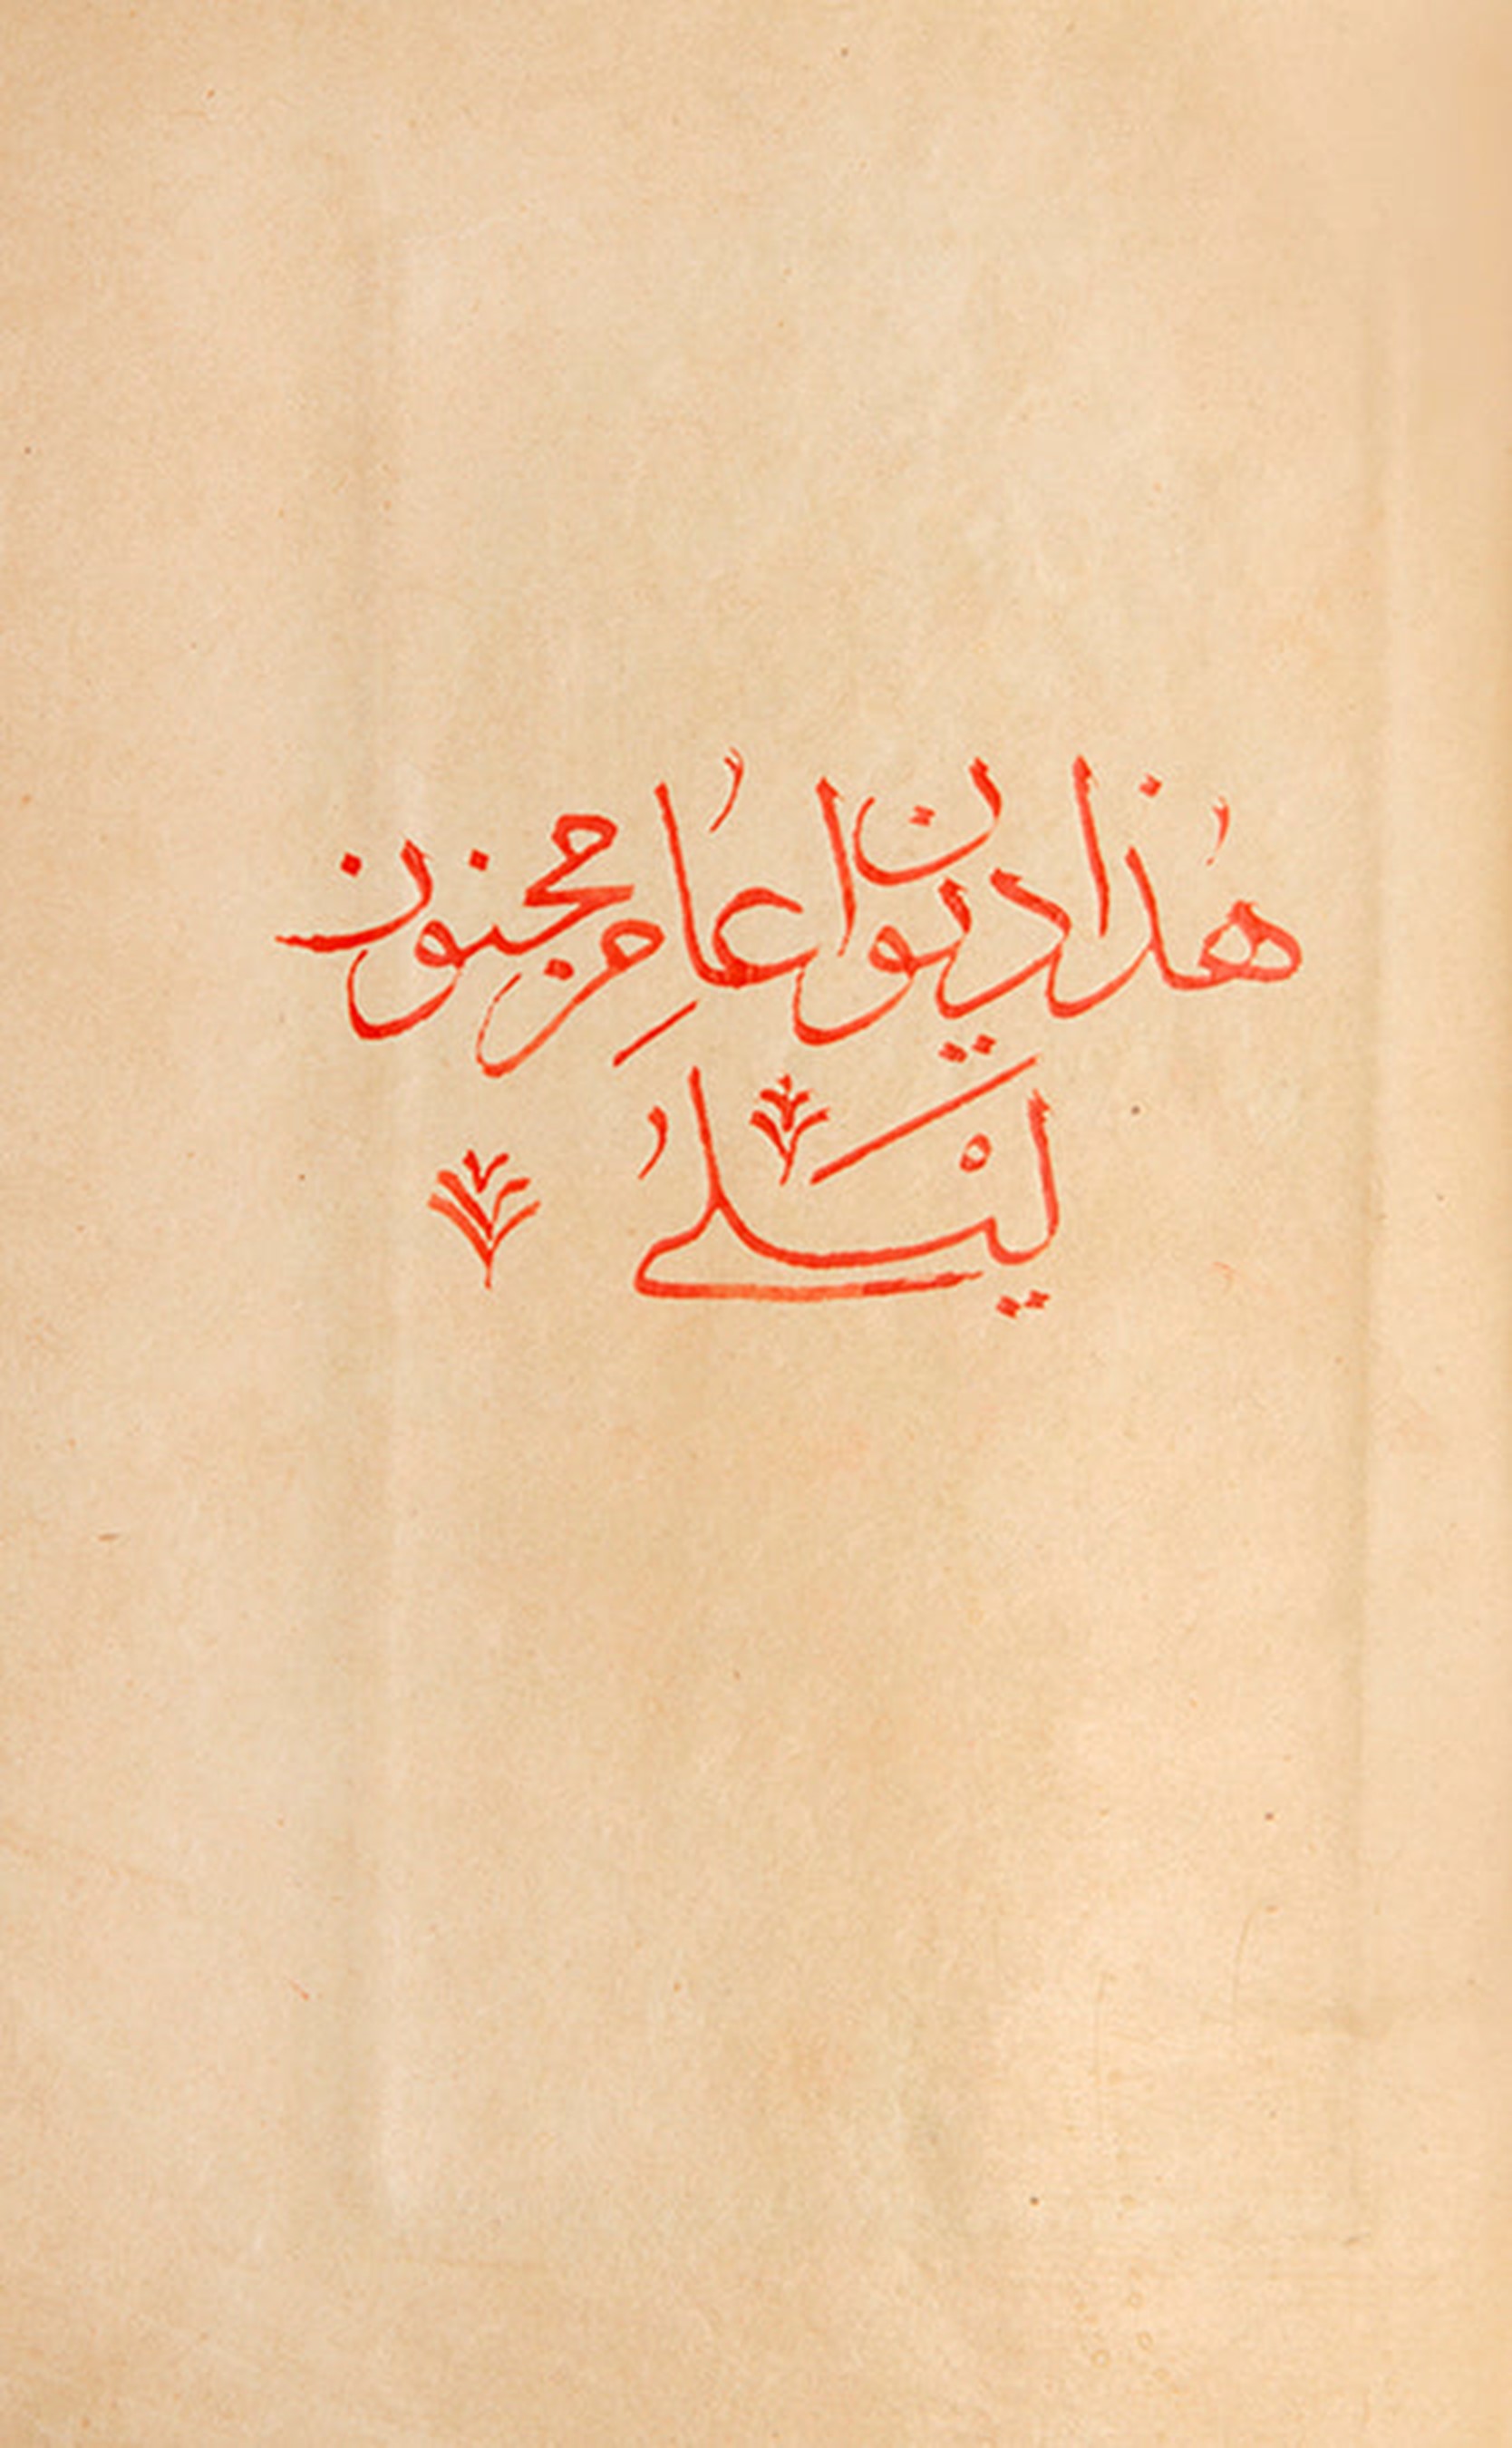 هٰذا ديوان عامر مجنون
ليلى